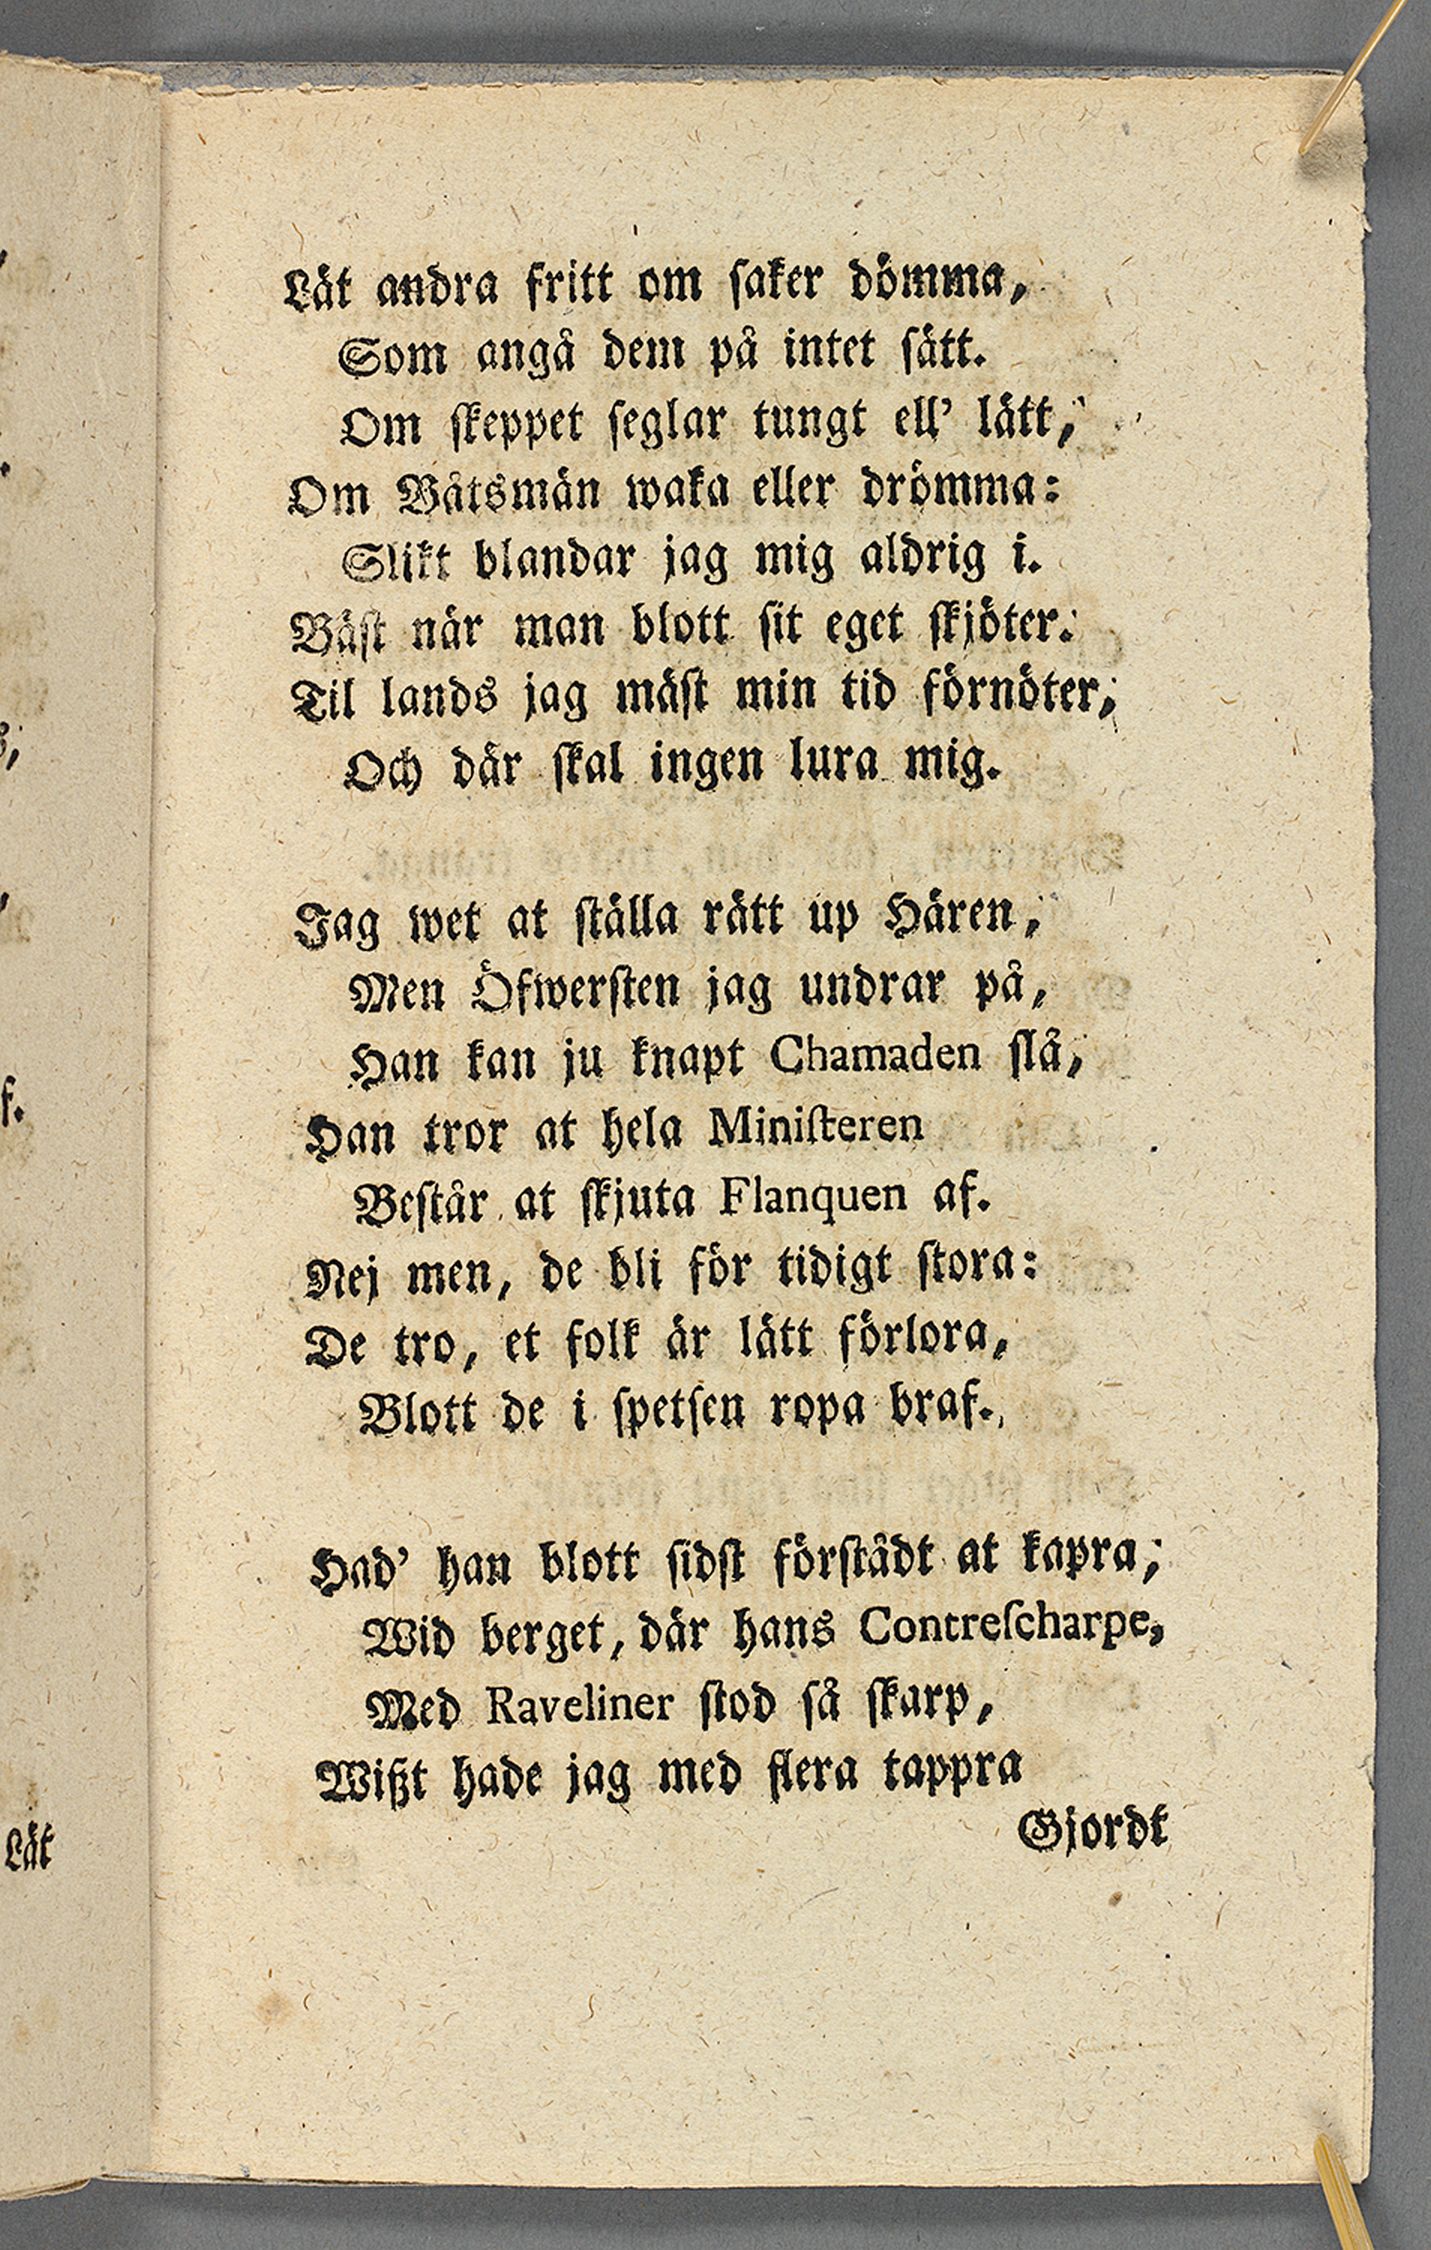 Låt andra fritt om saker dömma,
Som angå dem på intet sätt.
Om skeppet seglar tungt ell' lätt,
Om Båtsmän waka eller drömma:
Slikt blandar jag mig aldrig i.
Bäst när man blott sit eget skjöter.
Til lands jag mäst min tid förnöter,
Och där skal ingen lura mig.
Jag wet at ställa rätt up Hären,
Men Öfwersten jag undrar på,
Han kan ju knapt Chamaden slå,
Han tror at hela Ministeren
Består at skjuta Flanquen af.
Nej men, de bli för tidigt stora:
De tro, et folk är lätt förlora,
Blott de i spetsen ropa braf.
Had' han blott sidst förstådt at kapra,
Wid berget, där hans Contrescharpe,
Med Raveliner stod så skarp,
Wißt hade jag med flera tappra
Gjordt
Låt